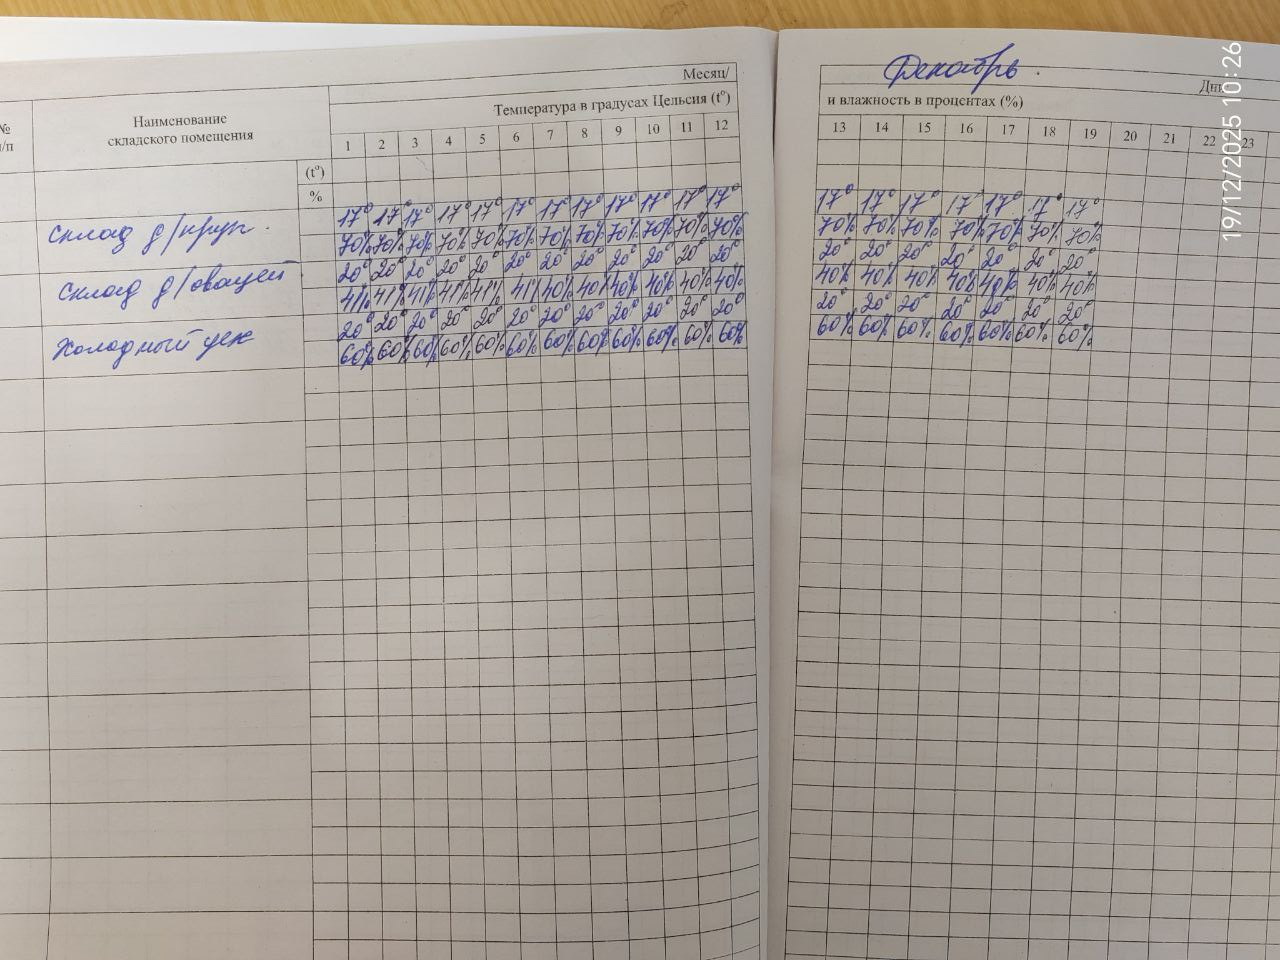 Месяц/
Декабрь.
Дни
№
п/п
Наименование
складского помещения
Температура в градусах Цельсия (t°)
и влажность в процентах (%)
1 2 3 4 5 6 7 8 9 10 11 12 13 14 15 16 17 18 19 20 21 22 23
(t°)
%
склад д/круп.
17° 17° 17° 17° 17° 17° 17° 17° 17° 17° 17° 17° 17° 17° 17° 17 17° 17° 17°
70% 70% 70% 70% 70% 70% 70% 70% 70% 70% 70% 70% 70% 70% 70% 70% 70% 70% 70%
склад д/овощей
20° 20° 20° 20° 20° 20° 20° 20° 20° 20° 20° 20° 20° 20° 20° 20° 20° 20° 20°
41% 41% 41% 41% 41% 41% 40% 40% 40% 40% 40% 40% 40% 40% 40% 40% 40% 40% 40%
Холодный цех
20° 20° 20° 20° 20° 20° 20° 20° 20° 20° 20° 20° 20° 20° 20° 20° 20° 20° 20°
60% 60% 60% 60% 60% 60% 60% 60% 60% 60% 60% 60% 60% 60% 60% 60% 60% 60% 60%
19/12/2025 10:26